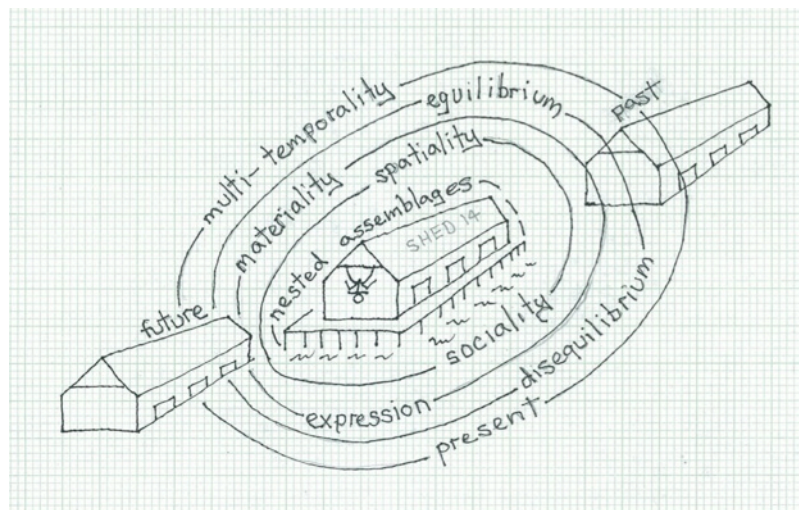 multi-temporality
equilibrium
past
materiality
spatiality
nested assemblages
SHED 14
future
sociality
disequilibrium
expression
present